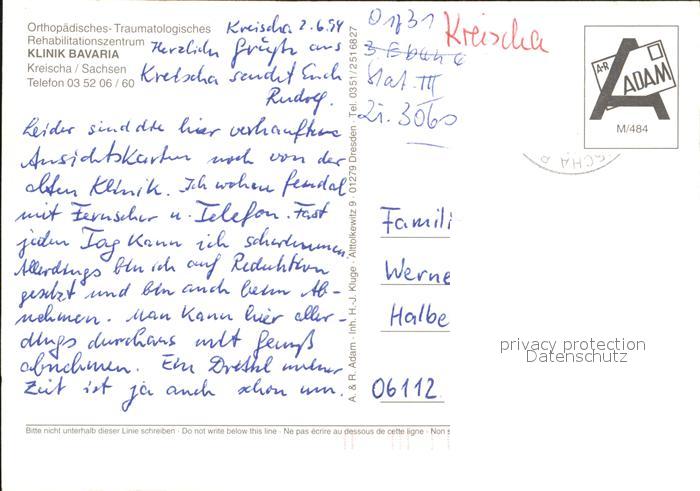 Orthopädisches-Traumatologisches
Rehabilitationszentrum
KLINIK BAVARIA
Kreischa / Sachsen
Telefon 03 52 06 / 60
Kreischa 2.6.94
Herzliche Grüße aus
Kreischa sendet Euch
Rudolf.
Leider sind die hier verkauften
Ansichtskarten noch von der
alten Klinik. Ich wohne feudal
mit Fernseher u. Telefon. Fast
jeden Tag kann ich schwimmen.
Allerdings bin ich auf Reduktion
gesetzt und bin auch beim Ab-
nehmen. Man kann hier aller-
dings durchaus mit Genuß
abnehmen. Ein Drittel meiner
Zeit ist ja auch schon um.
A. & R. Adam · Inh. H.-J. Kluge · Alttolkewitz 9 · 01279 Dresden · Tel. 0351/2516827
01731 Kreischa
3. Ebene
Stat. III
Zi. 3060
A·R
ADAM
M/484
SCHA
Famili
Werne
Halbe
06112
privacy protection
Datenschutz
Bitte nicht unterhalb dieser Linie schreiben · Do not write below this line · Ne pas écrire au dessous de cette ligne · Non s